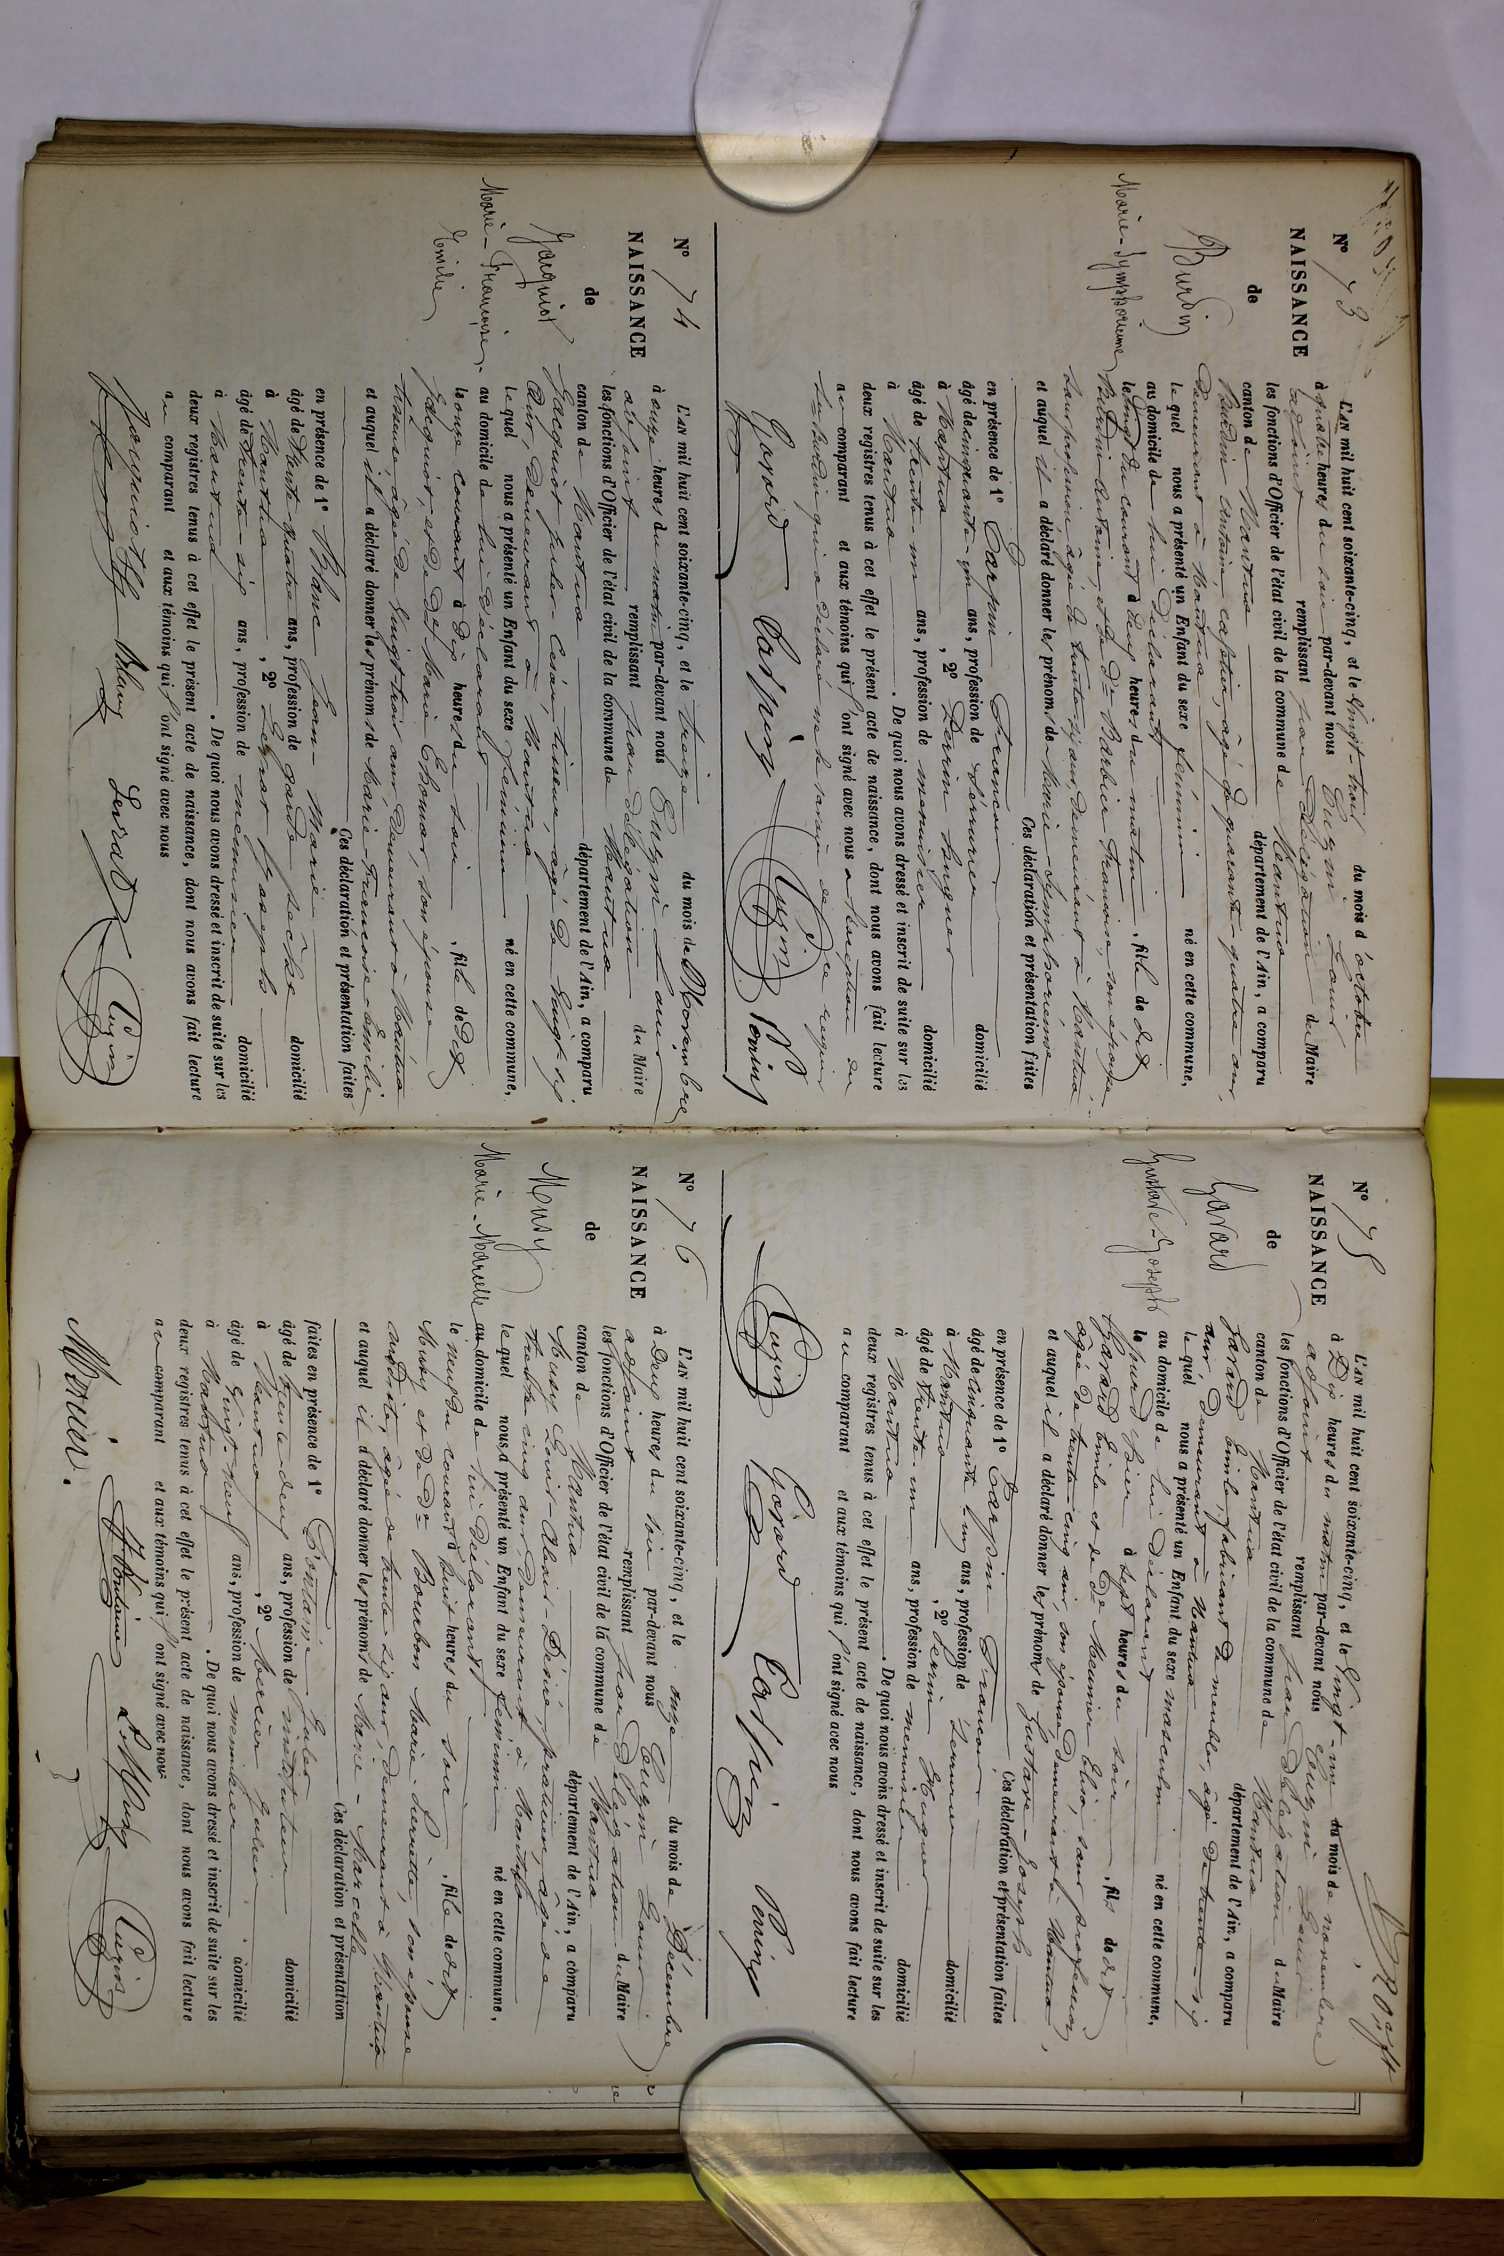 N° 73
NAISSANCE
de
Burdin
Marie-Symphorienne
L'AN mil huit cent soixante-cinq, et le Vingt-trois du mois d'octobre
à quatre heures du soir par-devant nous Eugin Louis
adjoint remplissant par délégation du Maire
les fonctions d'Officier de l'état civil de la commune de Nantua
canton de Nantua département de l'Ain, a comparu
Burdin Antoine, âgé de quarante-quatre ans,
demeurant à Nantua
lequel nous a présenté un Enfant du sexe féminin né en cette commune,
au domicile de lui déclarant
le Vingt du courant à deux heures du matin, fille de dit
Burdin Antoine, et de De Barbier Françoise, son épouse
sans profession âgée de trente six ans, demeurant à Nantua
et auquel il a déclaré donner les prénoms de Marie-Symphorienne
Ces déclaration et présentation faites
en présence de 1° Carpin François
âgé de cinquante-un ans, profession de serrurier domicilié
à Nantua, 2° Perrin Hugues
âgé de trente-un ans, profession de menuisier domicilié
à Nantua. De quoi nous avons dressé et inscrit de suite sur les
deux registres tenus à cet effet le présent acte de naissance, dont nous avons fait lecture
au comparant et aux témoins qui l'ont signé avec nous à l'exception du
sieur Burdin qui a déclaré ne le savoir de ce requis
Gorard Carpin Eugin Perrin
N° 74
NAISSANCE
de
Jacquiot
Marie-Françoise-
Emilie
L'AN mil huit cent soixante-cinq, et le treize du mois de Novembre
à onze heures du matin par-devant nous Eugin Louis
adjoint remplissant par délégation du Maire
les fonctions d'Officier de l'état civil de la commune de Nantua
canton de Nantua département de l'Ain, a comparu
Jacquiot Jules César, tisseur, âgé de Vingt six
ans, demeurant à Nantua
lequel nous a présenté un Enfant du sexe féminin né en cette commune,
au domicile de lui déclarant
le onze courant à dix heures du soir, fille de dit
Jacquiot, et de De Marie Chomar, son épouse
tisseuse âgée de Vingt-trois ans, demeurant à Nantua
et auquel il a déclaré donner les prénoms de Marie-Françoise-Emilie
Ces déclaration et présentation faites
en présence de 1° Blanc Jean-Marie
âgé de trente quatre ans, profession de garde pêche domicilié
à Nantua, 2° Levrat Joseph
âgé de trente-six ans, profession de menuisier domicilié
à Nantua. De quoi nous avons dressé et inscrit de suite sur les
deux registres tenus à cet effet le présent acte de naissance, dont nous avons fait lecture
au comparant et aux témoins qui l'ont signé avec nous
Jacquiot Blanc Levrat Eugin
N° 75
NAISSANCE
de
Gavard
Gustave-Joseph
L'AN mil huit cent soixante-cinq, et le Vingt-un du mois de novembre
à Dix heures du matin par-devant nous Eugin Louis
adjoint remplissant par Délégation du Maire
les fonctions d'Officier de l'état civil de la commune de Nantua
canton de Nantua département de l'Ain, a comparu
Gavard Emile, fabricant de meubles, âgé de trente-six
ans, demeurant à Nantua
lequel nous a présenté un Enfant du sexe masculin né en cette commune,
au domicile de lui déclarant
le jour d'hier à sept heures du soir, fils de dit
Gavard Emile et de De Meunier Elisa, sans profession,
âgée de trente-cinq ans, son épouse demeurant à Nantua,
et auquel il a déclaré donner les prénoms de Gustave-Joseph
Ces déclaration et présentation faites
en présence de 1° Carpin François
âgé de cinquante-un ans, profession de serrurier domicilié
à Nantua, 2° Perrin Hugues
âgé de trente-un ans, profession de menuisier domicilié
à Nantua. De quoi nous avons dressé et inscrit de suite sur les
deux registres tenus à cet effet le présent acte de naissance, dont nous avons fait lecture
au comparant et aux témoins qui l'ont signé avec nous
Eugin Gorard Carpin Perrin
N° 76
NAISSANCE
de
Musy
Marie-Marcelle
L'AN mil huit cent soixante-cinq, et le onze du mois de Décembre
à Deux heures du soir par-devant nous Eugin Louis
adjoint remplissant par Délégation du Maire
les fonctions d'Officier de l'état civil de la commune de Nantua
canton de Nantua département de l'Ain, a comparu
Musy Louis-Désiré, praticien, âgé de
trente cinq ans demeurant à Nantua
lequel nous a présenté un Enfant du sexe féminin né en cette commune,
au domicile de lui déclarant
le neuf du courant à huit heures du soir, fille de dit
Musy et de De Bourbon Marie-Pierrette, son épouse
susdite, âgée de trente six ans, demeurant à Nantua
et auquel il a déclaré donner les prénoms de Marie-Marcelle
Ces déclaration et présentation
faites en présence de 1° Fontaine Jules
âgé de trente-deux ans, profession de instituteur domicilié
à Nantua, 2° Mercier Julien
âgé de Vingt-neuf ans, profession de menuisier domicilié
à Nantua. De quoi nous avons dressé et inscrit de suite sur les
deux registres tenus à cet effet le présent acte de naissance, dont nous avons fait lecture
au comparant et aux témoins qui l'ont signé avec nous
Mercier. J. Fontaine L. Musy Eugin